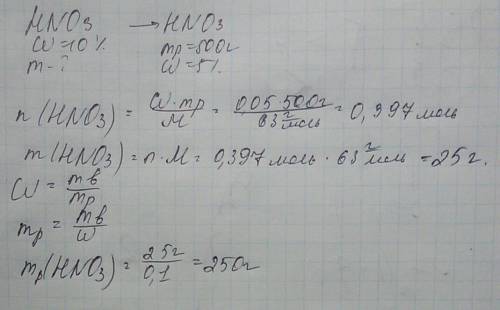 HNO3 → HNO3
W=10% mр=500г
m-? W=5%
n(HNO3) = W·mр/M = 0,05·500г/63 г/моль = 0,397 моль
m(HNO3) = n·M = 0,397 моль · 63 г/моль = 25г.
W = mв/mр
mр = mв/W
mр(HNO3) = 25г/0,1 = 250г